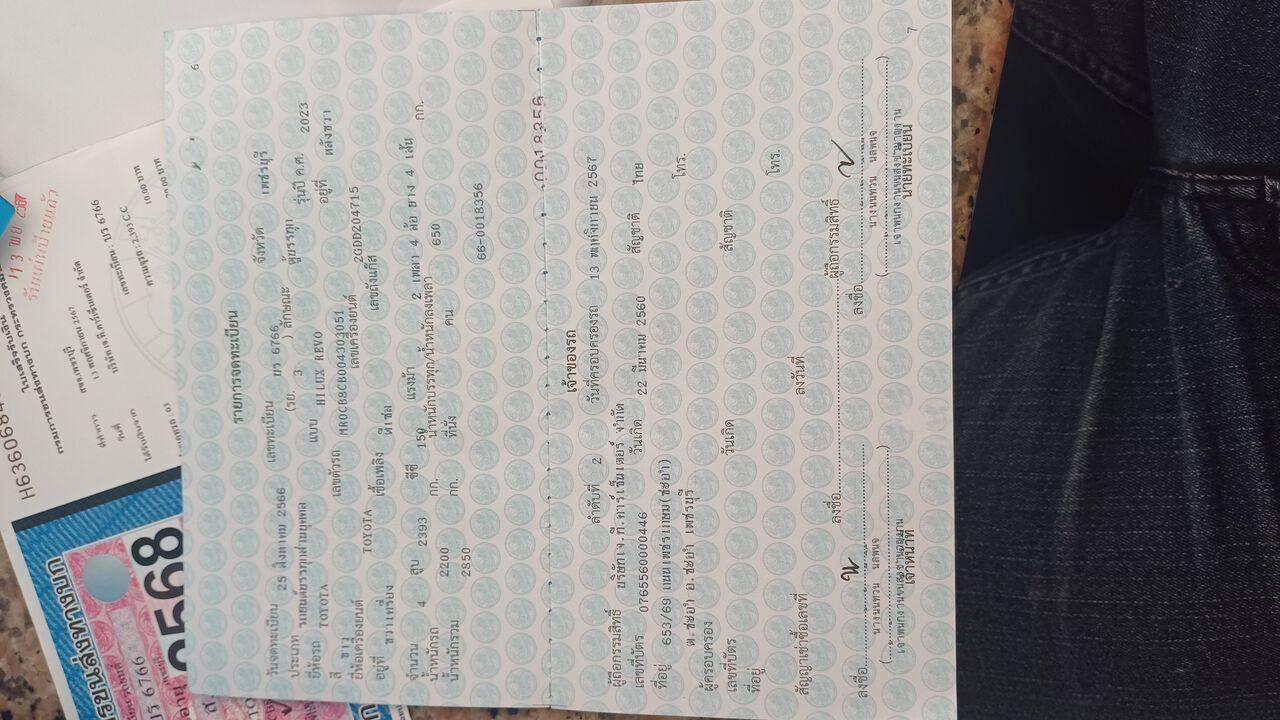 6
รายการจดทะเบียน
วันจดทะเบียน 25 สิงหาคม 2566 เลขทะเบียน บร 6766 จังหวัด เพชรบุรี
ประเภท รถยนต์บรรทุกส่วนบุคคล (รย. 3 ) ลักษณะ ตู้บรรทุก
ยี่ห้อรถ TOYOTA แบบ HILUX REVO รุ่นปี ค.ศ. 2023
สี ขาว เลขตัวรถ MR0CB8CB004303051 อยู่ที่ หลังขวา
ยี่ห้อเครื่องยนต์ TOYOTA เลขเครื่องยนต์ 2GDD204715
อยู่ที่ ขวาเครื่อง เชื้อเพลิง ดีเซล เลขถังแก๊ส
จำนวน 4 สูบ 2393 ซีซี 150 แรงม้า 2 เพลา 4 ล้อ ยาง 4 เส้น
น้ำหนักรถ 2200 กก. น้ำหนักบรรทุก/น้ำหนักลงเพลา 650 กก.
น้ำหนักรวม 2850 กก. ที่นั่ง คน
66-0018356
0018356
เจ้าของรถ
ลำดับที่ 2 วันที่ครอบครองรถ 13 พฤศจิกายน 2567
ผู้ถือกรรมสิทธิ์ บริษัทเจ.ที.คาร์เซ็นเตอร์ จำกัด
เลขที่บัตร 0765560000446 วันเกิด 22 มีนาคม 2560 สัญชาติ ไทย
ที่อยู่ 653/69 ถนนเพชรเกษม(ชะอำ) โทร.
ต.ชะอำ อ.ชะอำ เพชรบุรี
ผู้ครอบครอง
เลขที่บัตร วันเกิด สัญชาติ
ที่อยู่ โทร.
สัญญาเช่าซื้อเลขที่ ลงวันที่
ลงชื่อ ผู้ถือกรรมสิทธิ์
ลงชื่อ ลงชื่อ
เจ้าหน้าที่ นายทะเบียน
7
H636068
กรมการขนส่งทางบก กระทรวงคมนาคม
ใบเสร็จรับเงิน
13 พย
รับแผ่นป้ายแล้ว
วันที่ 13 พฤศจิกายน 2567
เลขทะเบียน: บร 6766
ความจุ: 2,393 CC
100 บาท
บร 6766
2568